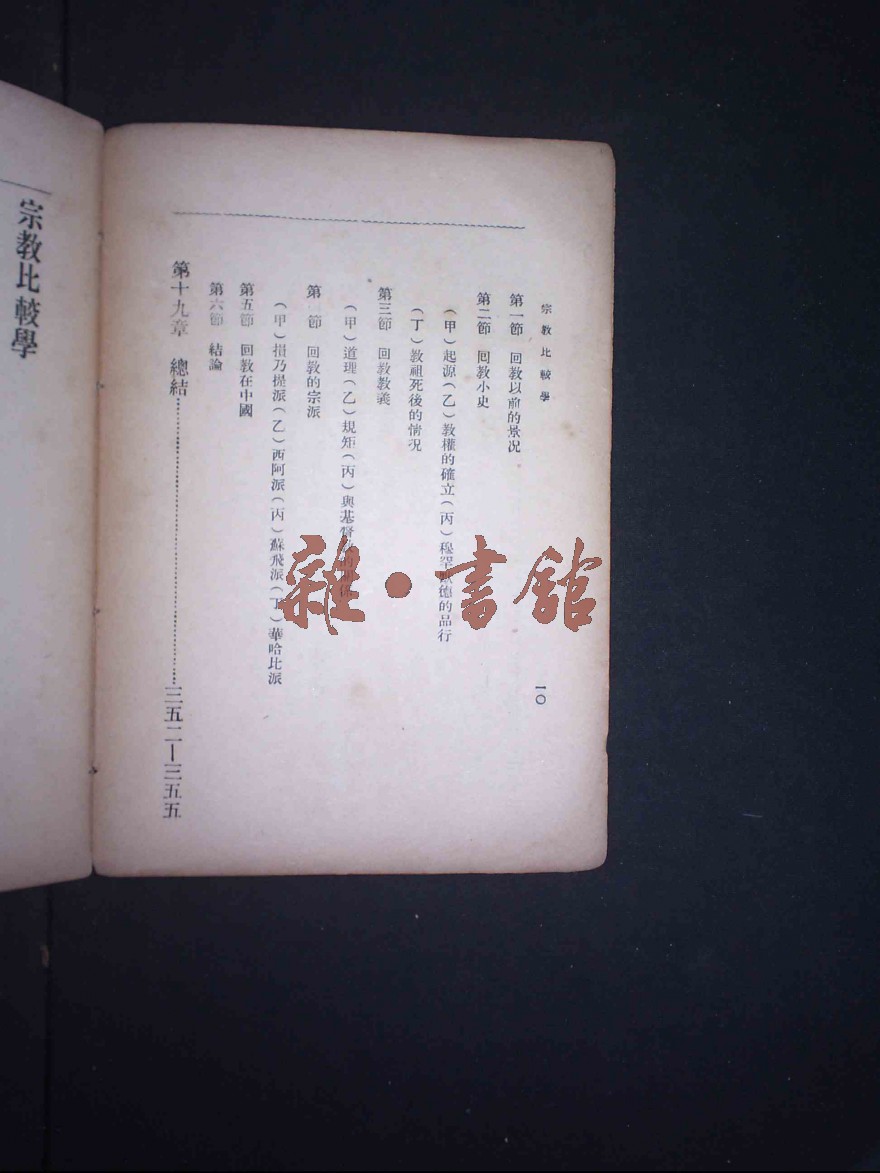 宗教比較學
一〇
第一節　回教以前的景况
第二節　回教小史
（甲）起源（乙）教權的確立（丙）穆罕默德的品行
（丁）教祖死後的情况
第三節　回教教義
（甲）道理（乙）規矩（丙）與基督教的
第　節　回教的宗派
（甲）損乃提派（乙）西阿派（丙）蘇飛派（丁）華哈比派
第五節　回教在中國
第六節　結論
第十九章　總結……三五二—三五五
宗教比較學
雜・書館